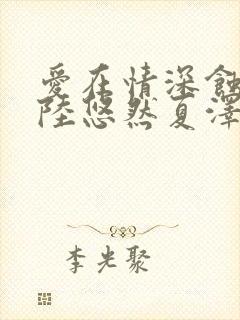 愛在情深蝕
陸悠然夏澤
李光聚